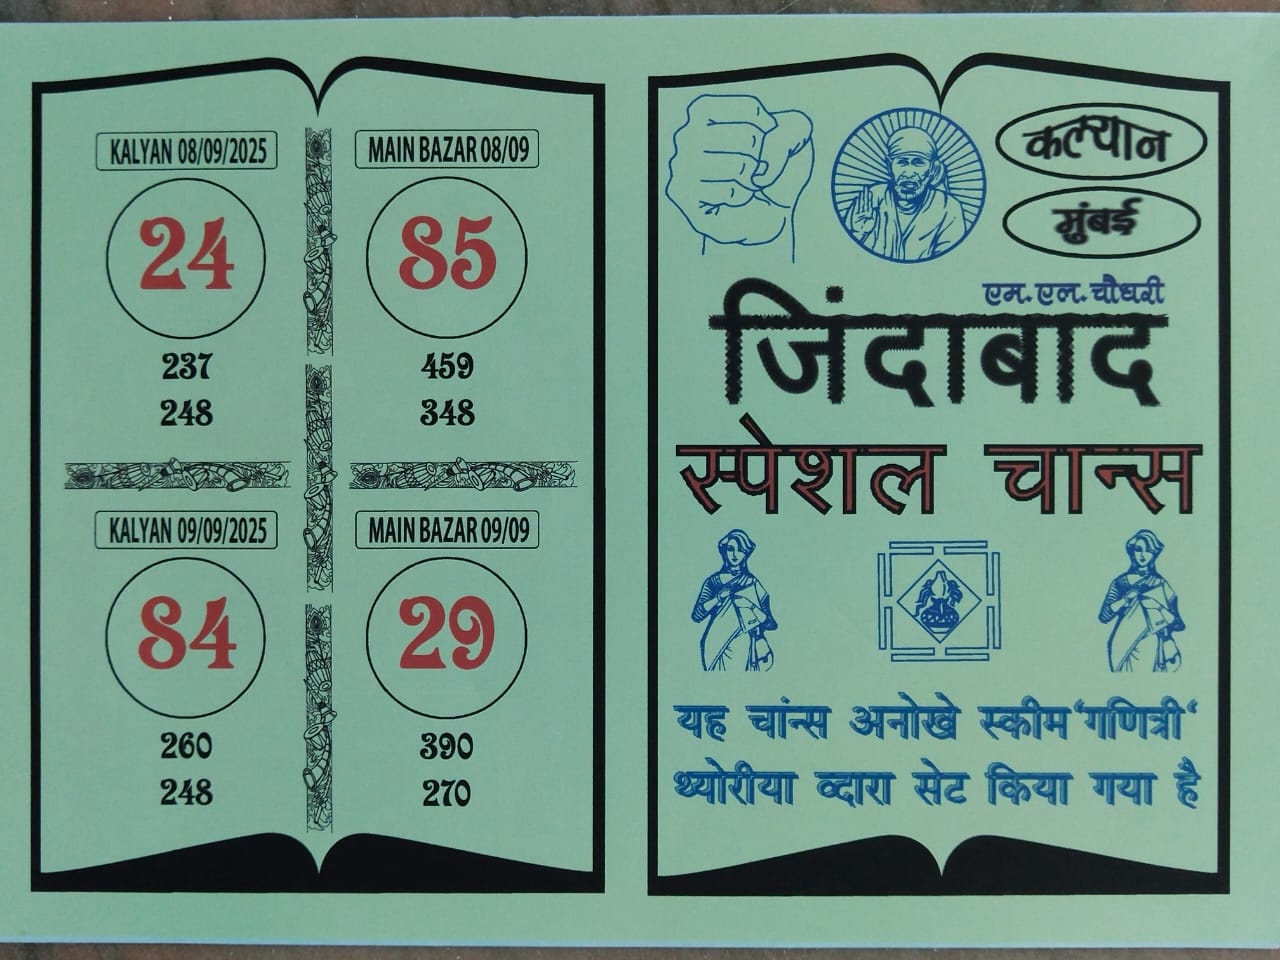 KALYAN 08/09/2025
24
237
248
MAIN BAZAR 08/09
85
459
348
KALYAN 09/09/2025
84
260
248
MAIN BAZAR 09/09
29
390
270
कल्यान
मुंबई
एम. एल. चौधरी
जिंदाबाद
स्पेशल चान्स
यह चांन्स अनोखे स्कीम ‘गणित्री‘
थ्योरीया व्दारा सेट किया गया है